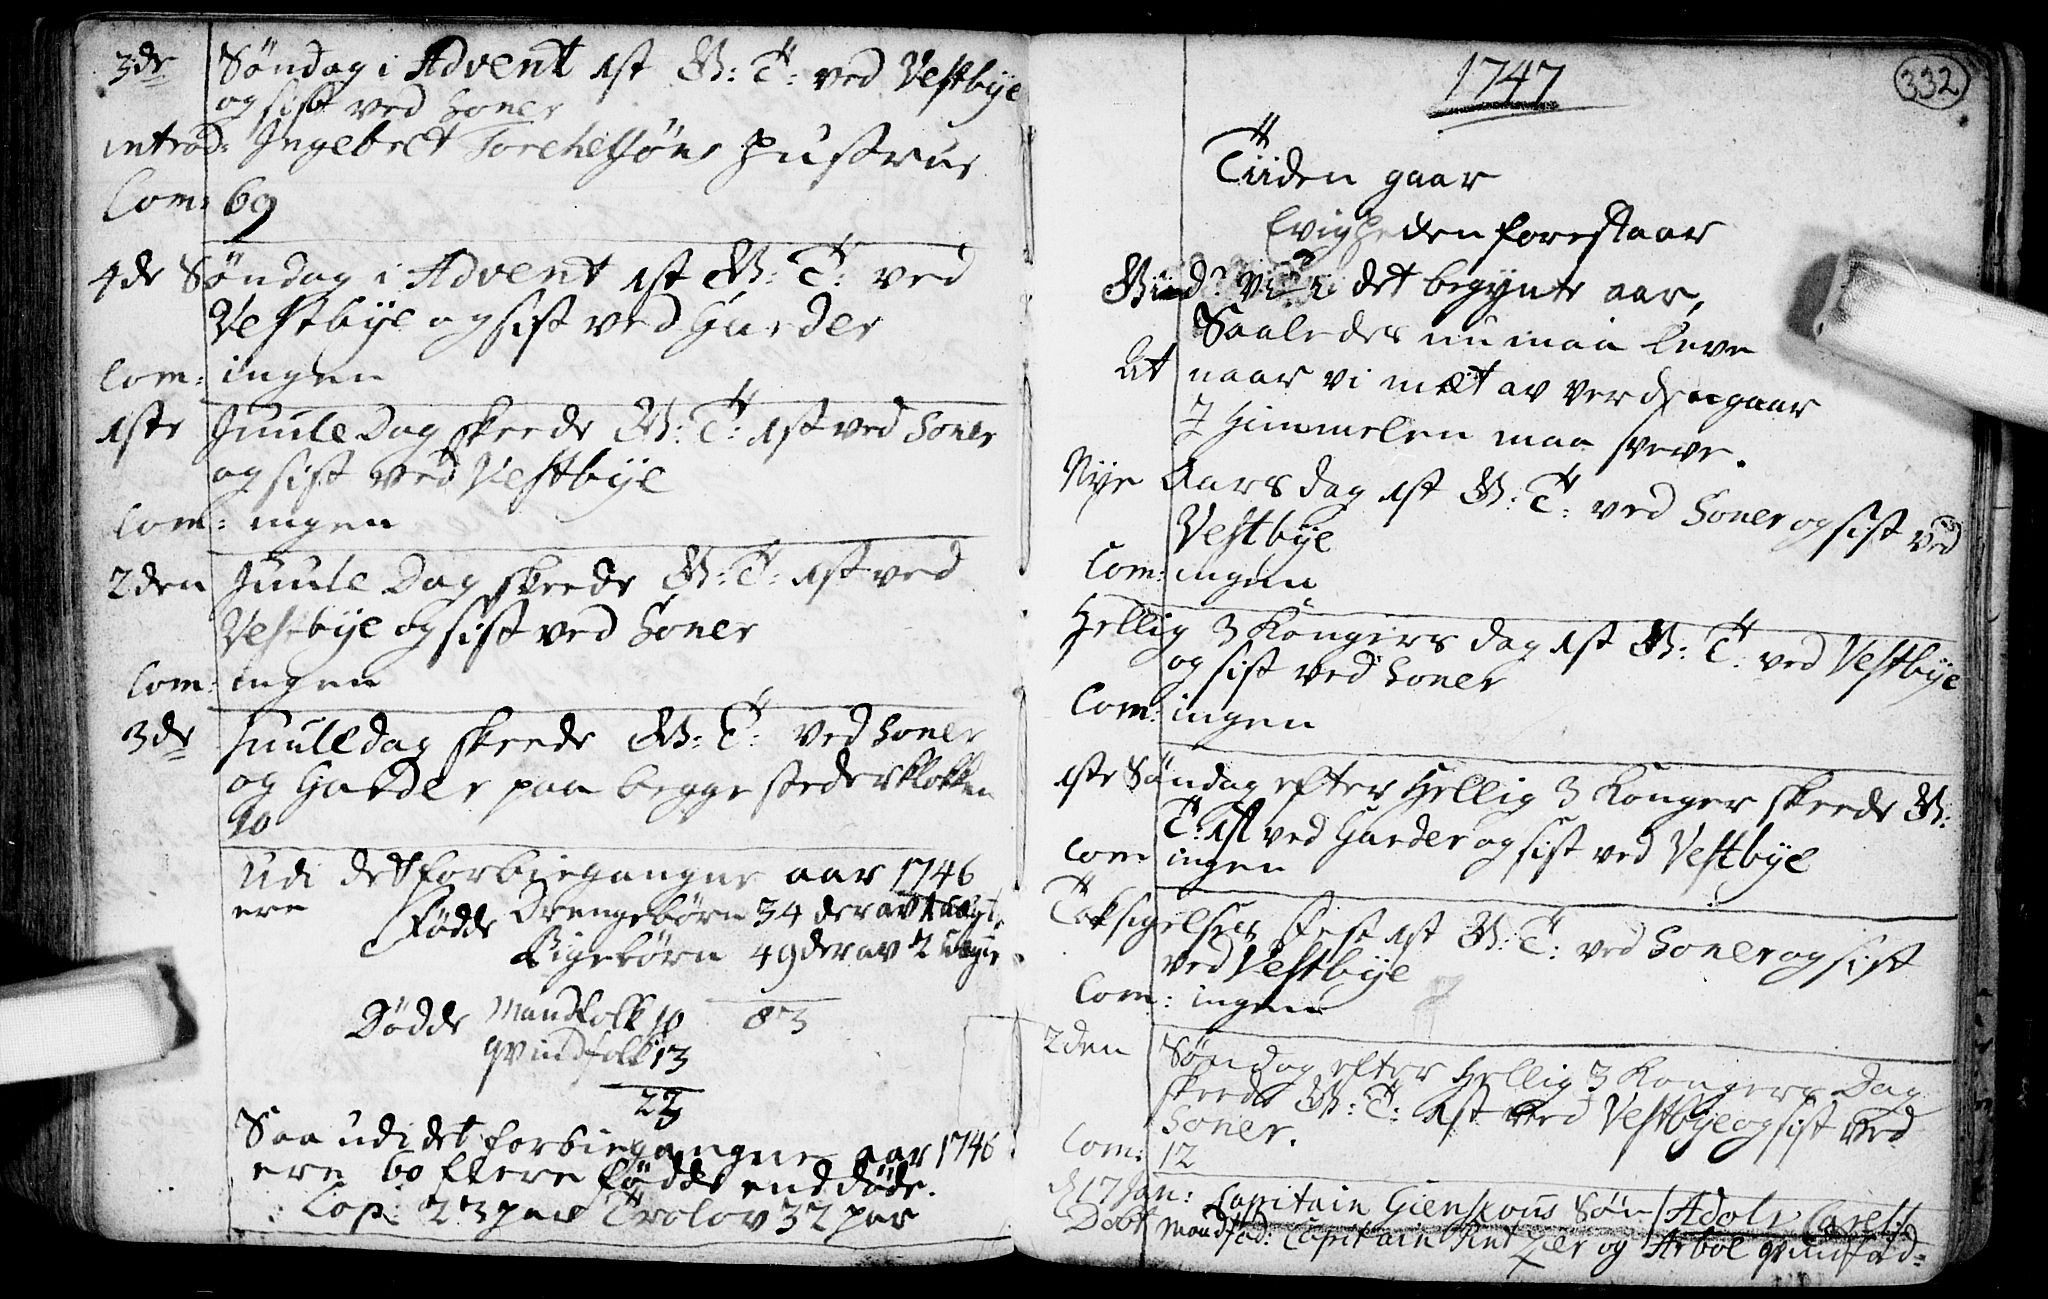 3de Søndag i Advent 1st G: T: ved Vestbÿe
og sist ved Soner
introd: Ingebret Torchelsøns Hustrue
Com: 69
4de Søndag i Advent 1st G: T: ved
Vestbÿe og sist ved Garder
Com: ingen
1ste Juule Dag skeede G: T: 1st ved Soner
og sist ved Vestbÿe
Com: ingen
2den Juule Dag skeede G: T: 1st ved
Vestbÿe og sist ved Soner
Com: ingen
3de Juuledag skeede G: T: ved Soner
og Garder paa begge steder klokken
10
Udi det forbiegangne aar 1746
ere
Fødde Drengebørn 34 derav 1 uægte
Pigebørn 49 derav 2 uægte
83
Dødde Mandfolk 10
Qvindfolk 13
23
Saa udi det forbiegangne aar 1746
ere 60 flere fødde end døde.
Cop: 23 par Trolov 32 par
332
1747
Tiiden gaar
Evigheden forestaar
Giid vi i det begynte aar,
Saaledes nu maa leve
At naar vi mæt av verden gaar
I Himmelen maa sveve.
Nye Aars dag 1st G: T: ved Soner og sist ved
Vestbÿe
Com: ingen
Hellig 3 Kongers dag 1st G: T: ved Vestbÿe
og sist ved Soner
Com: ingen
1ste Søndag efter Hellig 3 Konger skeede G:
T: 1st ved Garder og sist ved Vestbÿe
Com ingen
Taksigelses fest 1st G: T: ved Soner og sist
ved Vestbÿe
Com: ingen
2den Søndag efter Hellig 3 Kongers Dag
skeede G: T: 1st ved Vestbÿe og sist ved
Soner.
Com: 12
d 17 Jan: Capitain Søn Adolv
Døbt Mandfad: Capitain og Arbol qvindfad: